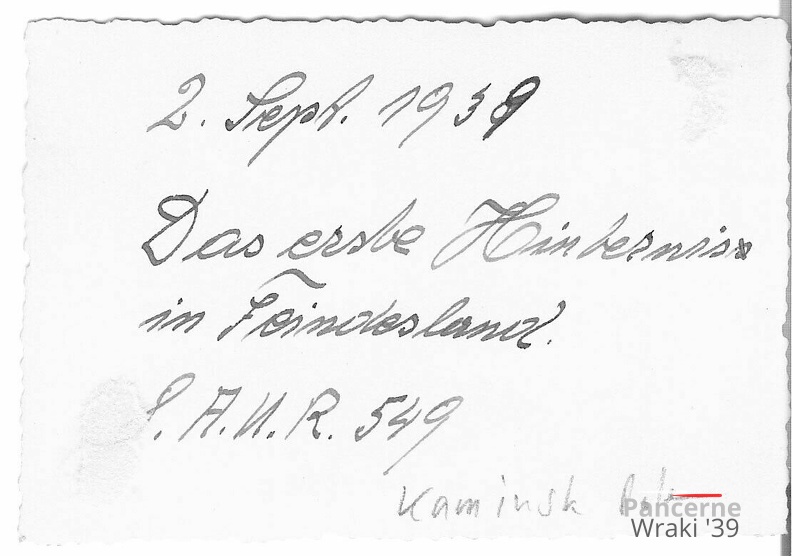 2. Sept. 1939
Das erste Hinderniss
in Feindesland.
S.A.U.R. 549
Kaminsk
Pancerne
Wraki '39